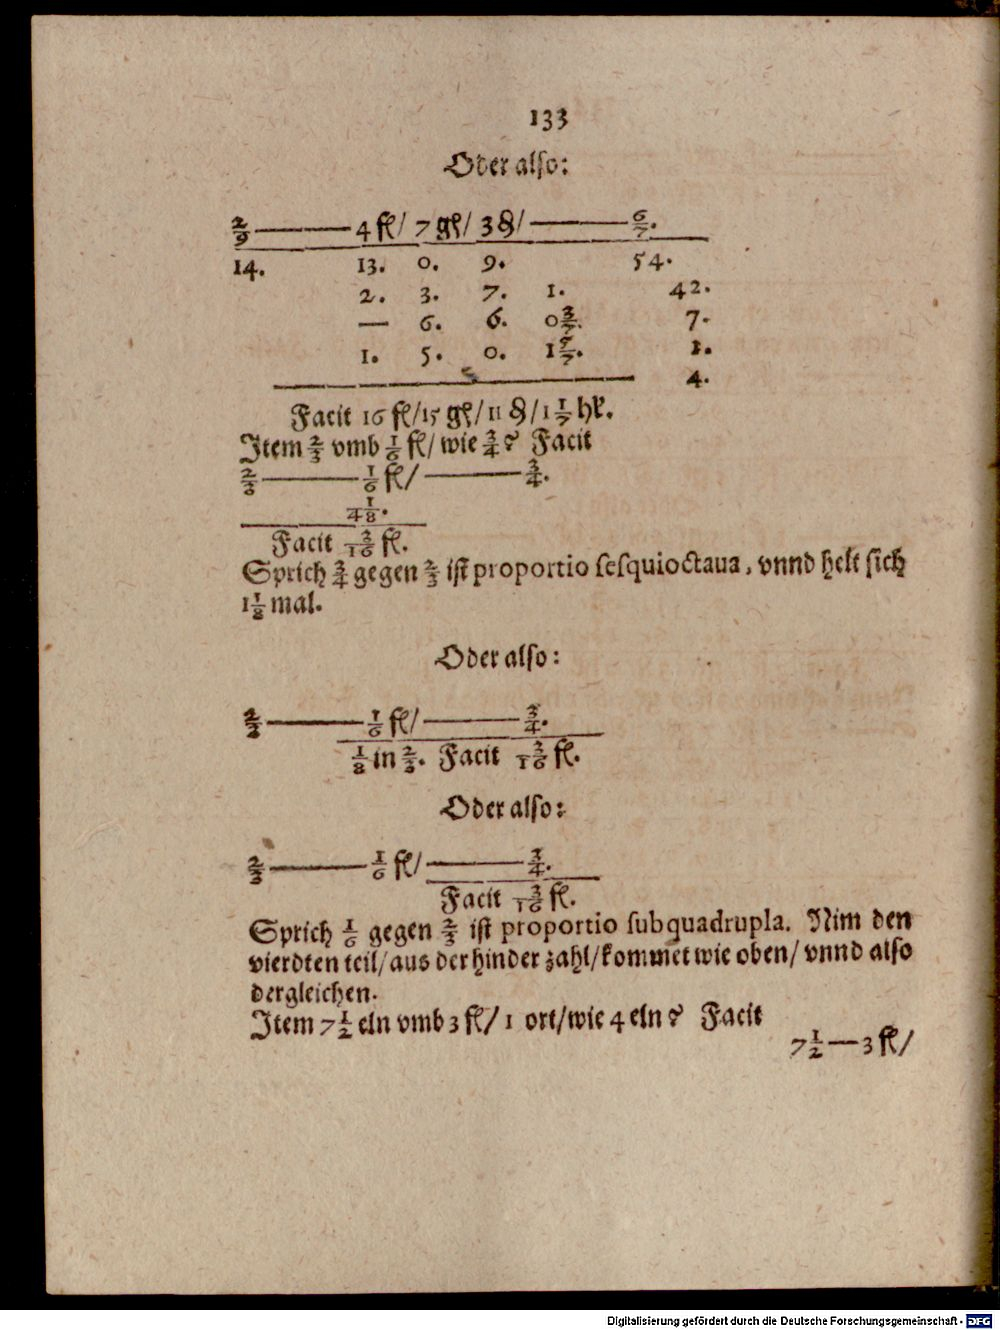 133
Oder also:
2/9 ——— 4 fl/ 7 gl/ 3 ₰/ ——— 6/7.
14. 13. 0. 9. 54.
2. 3. 7. 1. 42.
— 6. 6. 0 3/7. 7.
1. 5. 0. 1 5/7. 1.
4.
Facit 16 fl/ 15 gl/ 11 ₰/ 1 1/7 hl.
Item 2/3 vmb 1/6 fl/ wie 3/4? Facit
2/3 ——— 1/6 fl/ ——— 3/4.
1/48.
Facit 3/16 fl.
Sprich 3/4 gegen 2/3 ist proportio sesquioctaua, vnnd helt sich
1 1/8 mal.
Oder also:
2/3 ——— 1/6 fl/ ——— 3/4.
1/8 in 2/3. Facit 3/16 fl.
Oder also:
2/3 ——— 1/6 fl/ ——— 3/4.
Facit 3/16 fl.
Sprich 1/6 gegen 2/3 ist proportio subquadrupla. Nim den
vierdten teil/ aus der hinder zahl/ kommet wie oben/ vnnd also
dergleichen.
Item 7 1/2 eln vmb 3 fl/ 1 ort/ wie 4 eln? Facit
7 1/2 — 3 fl/
Digitalisierung gefördert durch die Deutsche Forschungsgemeinschaft - DFG